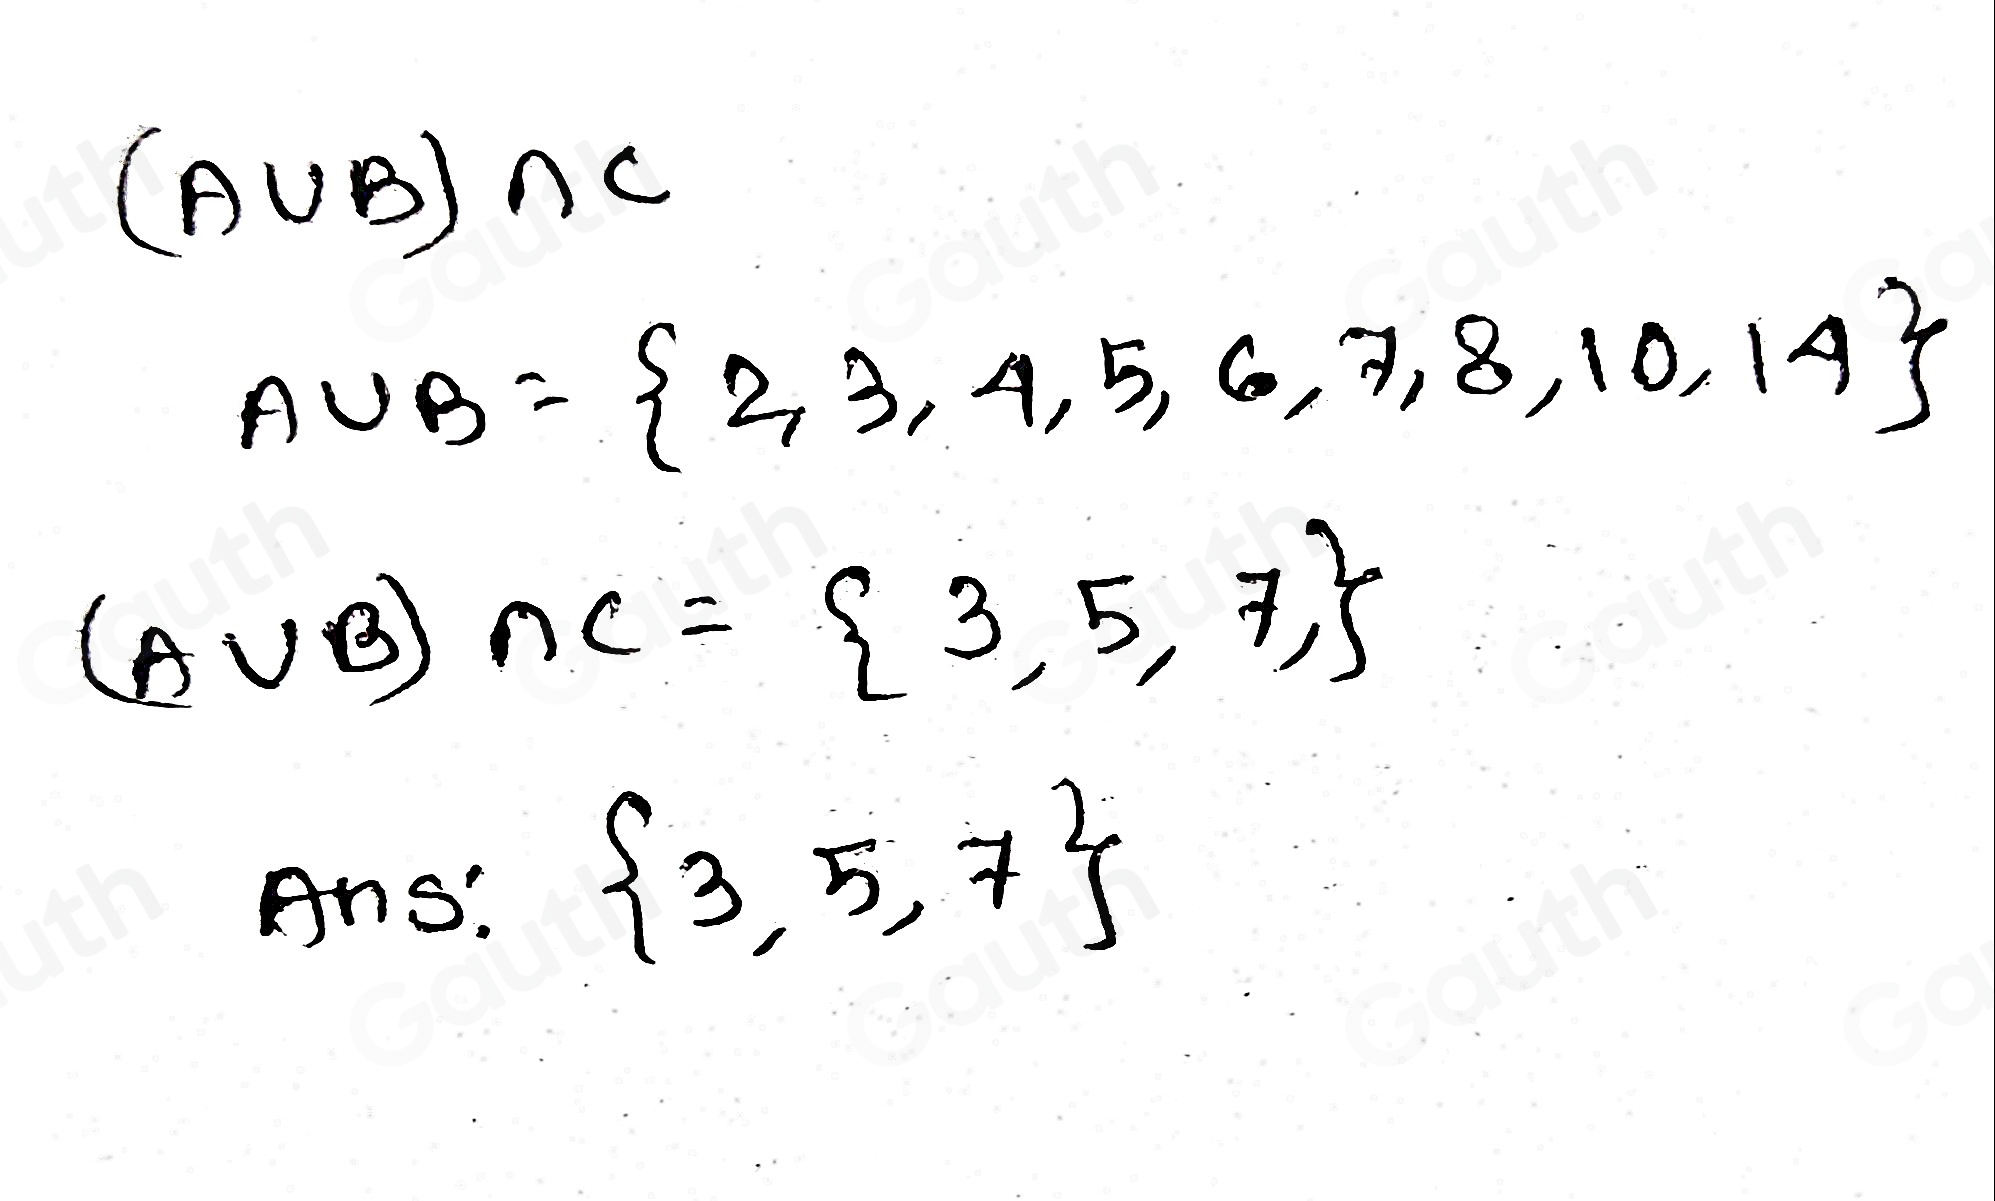 (A∪B) ∩ C
A∪B = {2, 3, 4, 5, 6, 7, 8, 10, 14}
(A∪B) ∩ C = {3, 5, 7,}
Ans: {3, 5, 7}
Gauth